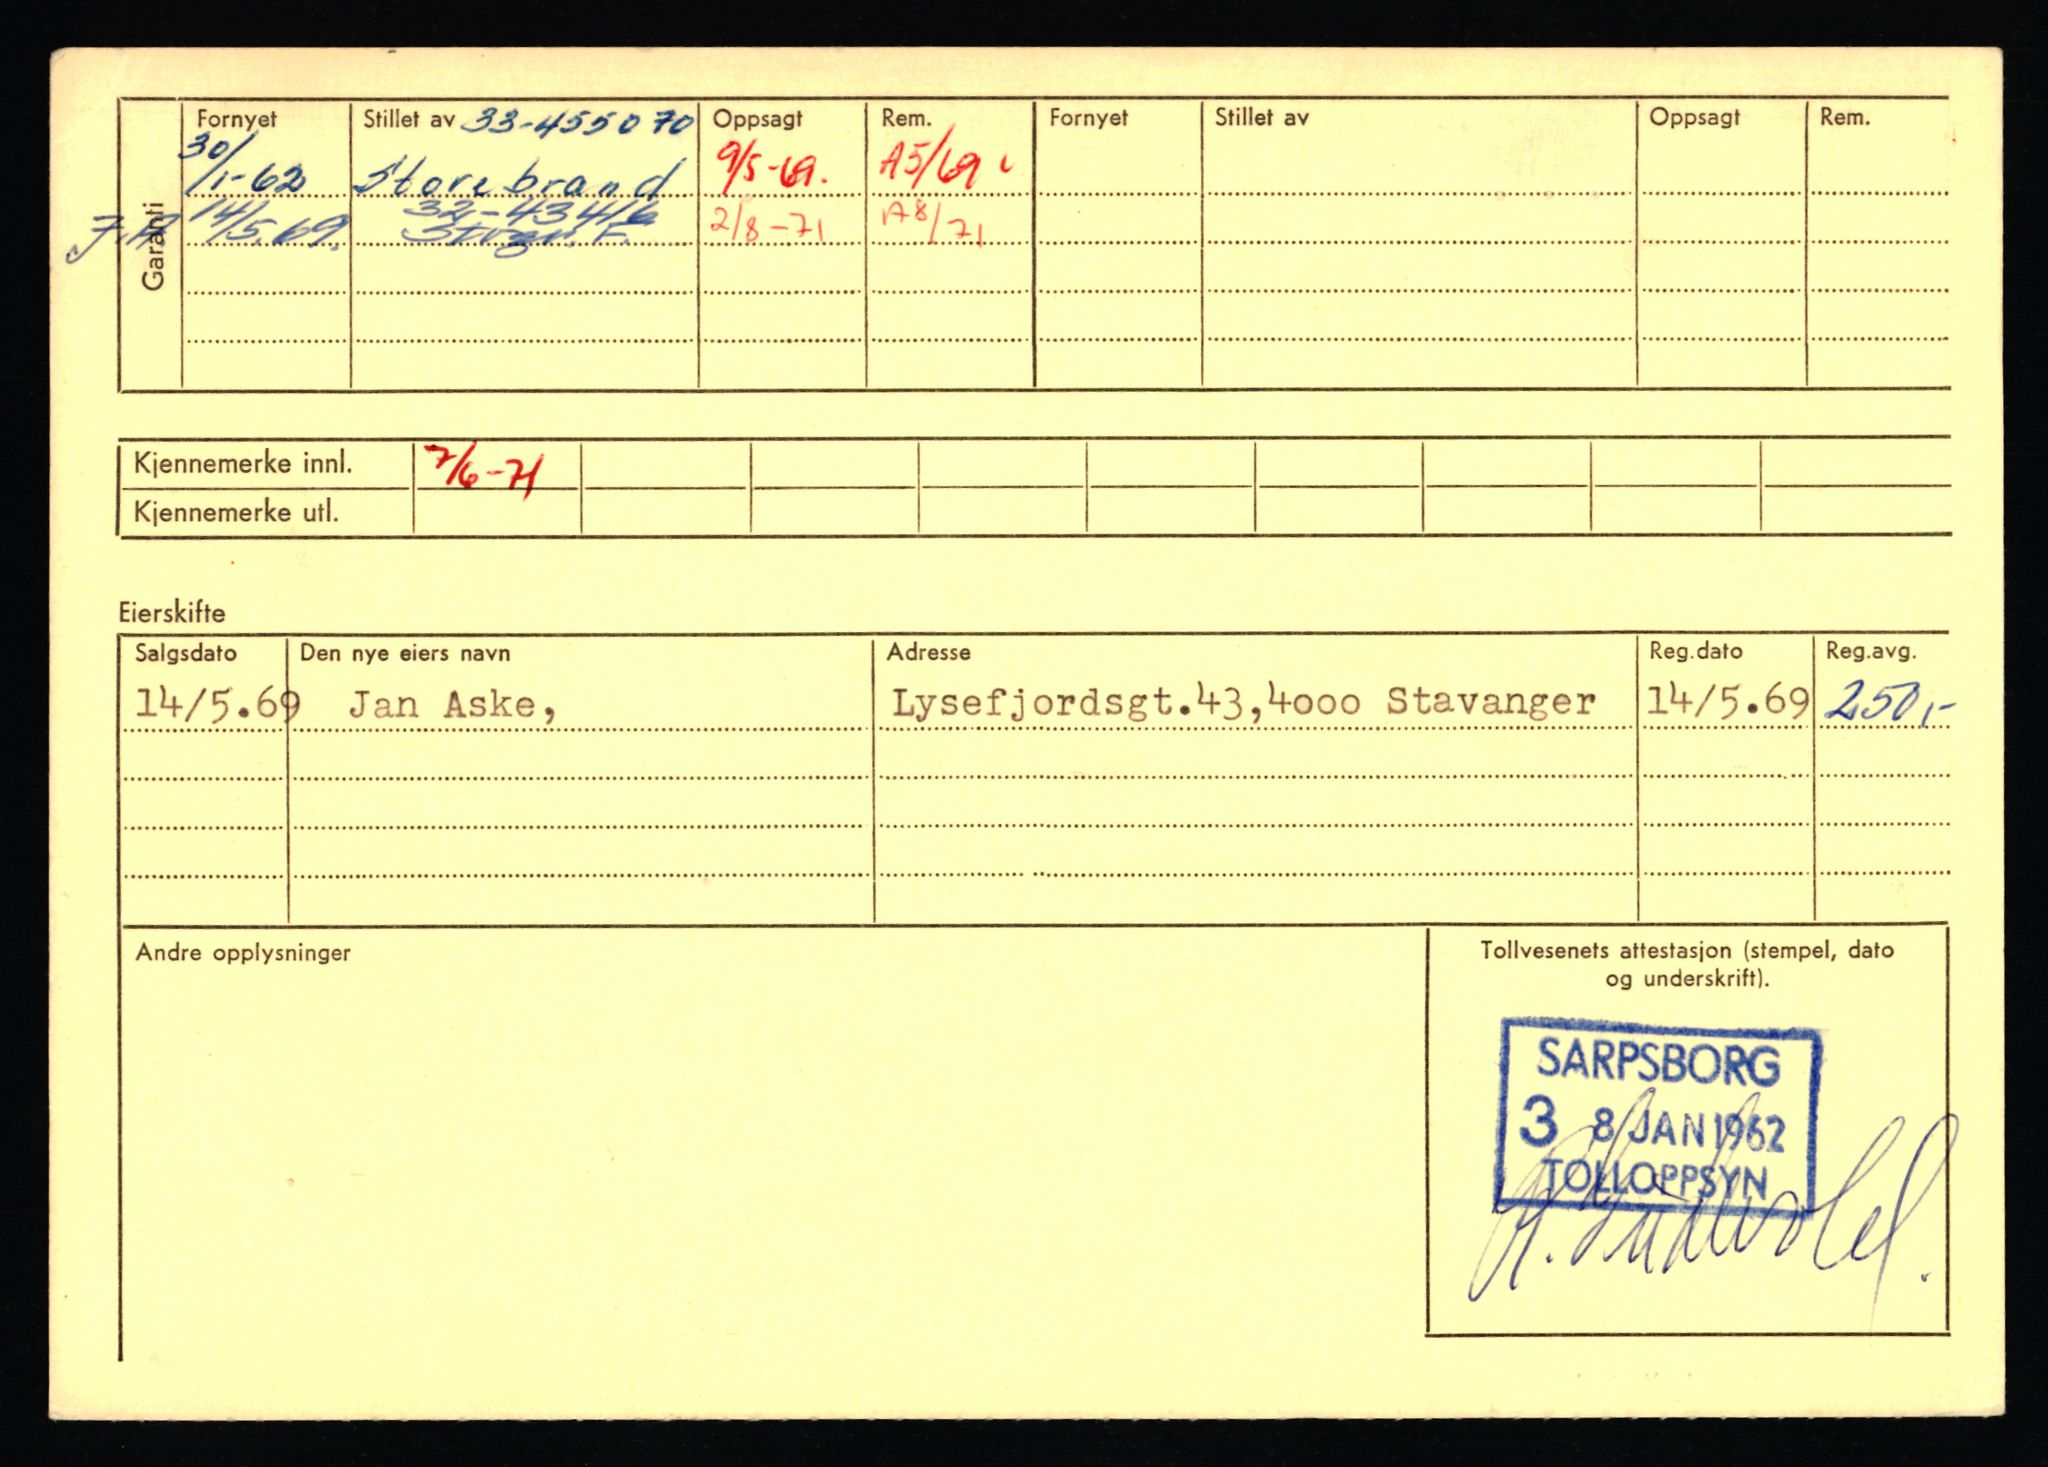 Garanti
Fornyet Stillet av 33-455070 Oppsagt Rem. Fornyet Stillet av Oppsagt Rem.
30/1-62 Storebrand 9/5-69. A5/69
32-43416
J.A. 14/5.69. 2/8-71 A8/71
Kjennemerke innl. 7/6-71
Kjennemerke utl.
Eierskifte
Salgsdato Den nye eiers navn Adresse Reg.dato Reg.avg.
14/5.69 Jan Aske, Lysefjordsgt.43,4000 Stavanger 14/5.69 250,-
Andre opplysninger
Tollvesenets attestasjon (stempel, dato
og underskrift).
SARPSBORG
3 8 JAN 1962
TOLLOPPSYN